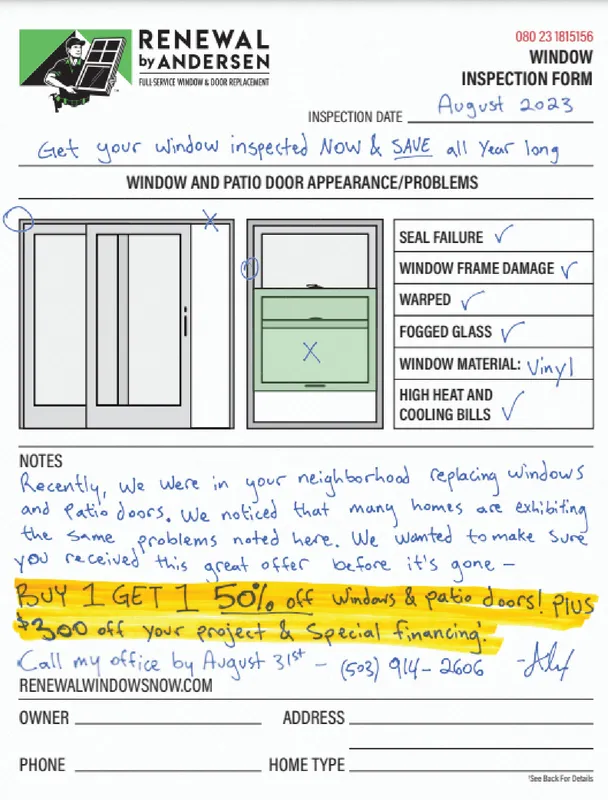 RENEWAL
by ANDERSEN
FULL-SERVICE WINDOW & DOOR REPLACEMENT
080 23 1815156
WINDOW
INSPECTION FORM
INSPECTION DATE August 2023
Get your window inspected NOW & SAVE all Year long
WINDOW AND PATIO DOOR APPEARANCE/PROBLEMS
SEAL FAILURE ✓
WINDOW FRAME DAMAGE ✓
WARPED ✓
FOGGED GLASS ✓
WINDOW MATERIAL: Vinyl
HIGH HEAT AND
COOLING BILLS ✓
NOTES
Recently, we were in your neighborhood replacing windows
and patio doors. We noticed that many homes are exhibiting
the same problems noted here. We wanted to make sure
you received this great offer before it's gone –
BUY 1 GET 1 50% off windows & patio doors! plus
$300 off your project & special financing!
Call my office by August 31st – (503) 914-2606
RENEWALWINDOWSNOW.COM
OWNER
ADDRESS
PHONE
HOME TYPE
*See Back For Details